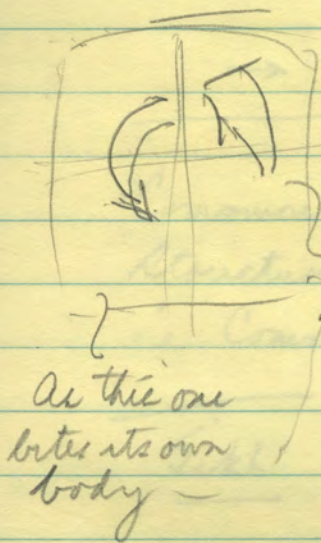 As this one
bites its own
body –